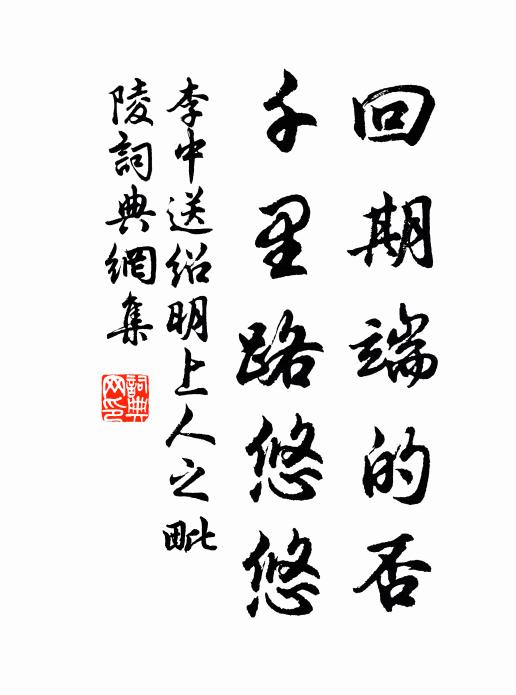 回期端的否
千里路悠悠
李中送绍明上人之毗
陵詞典網集
詞典网印